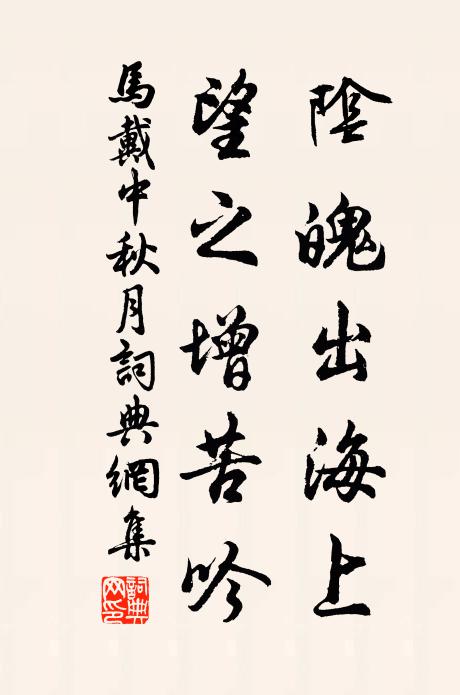 陰魄出海上
望之增苦吟
馬戴中秋月詞典網集
詞典網印